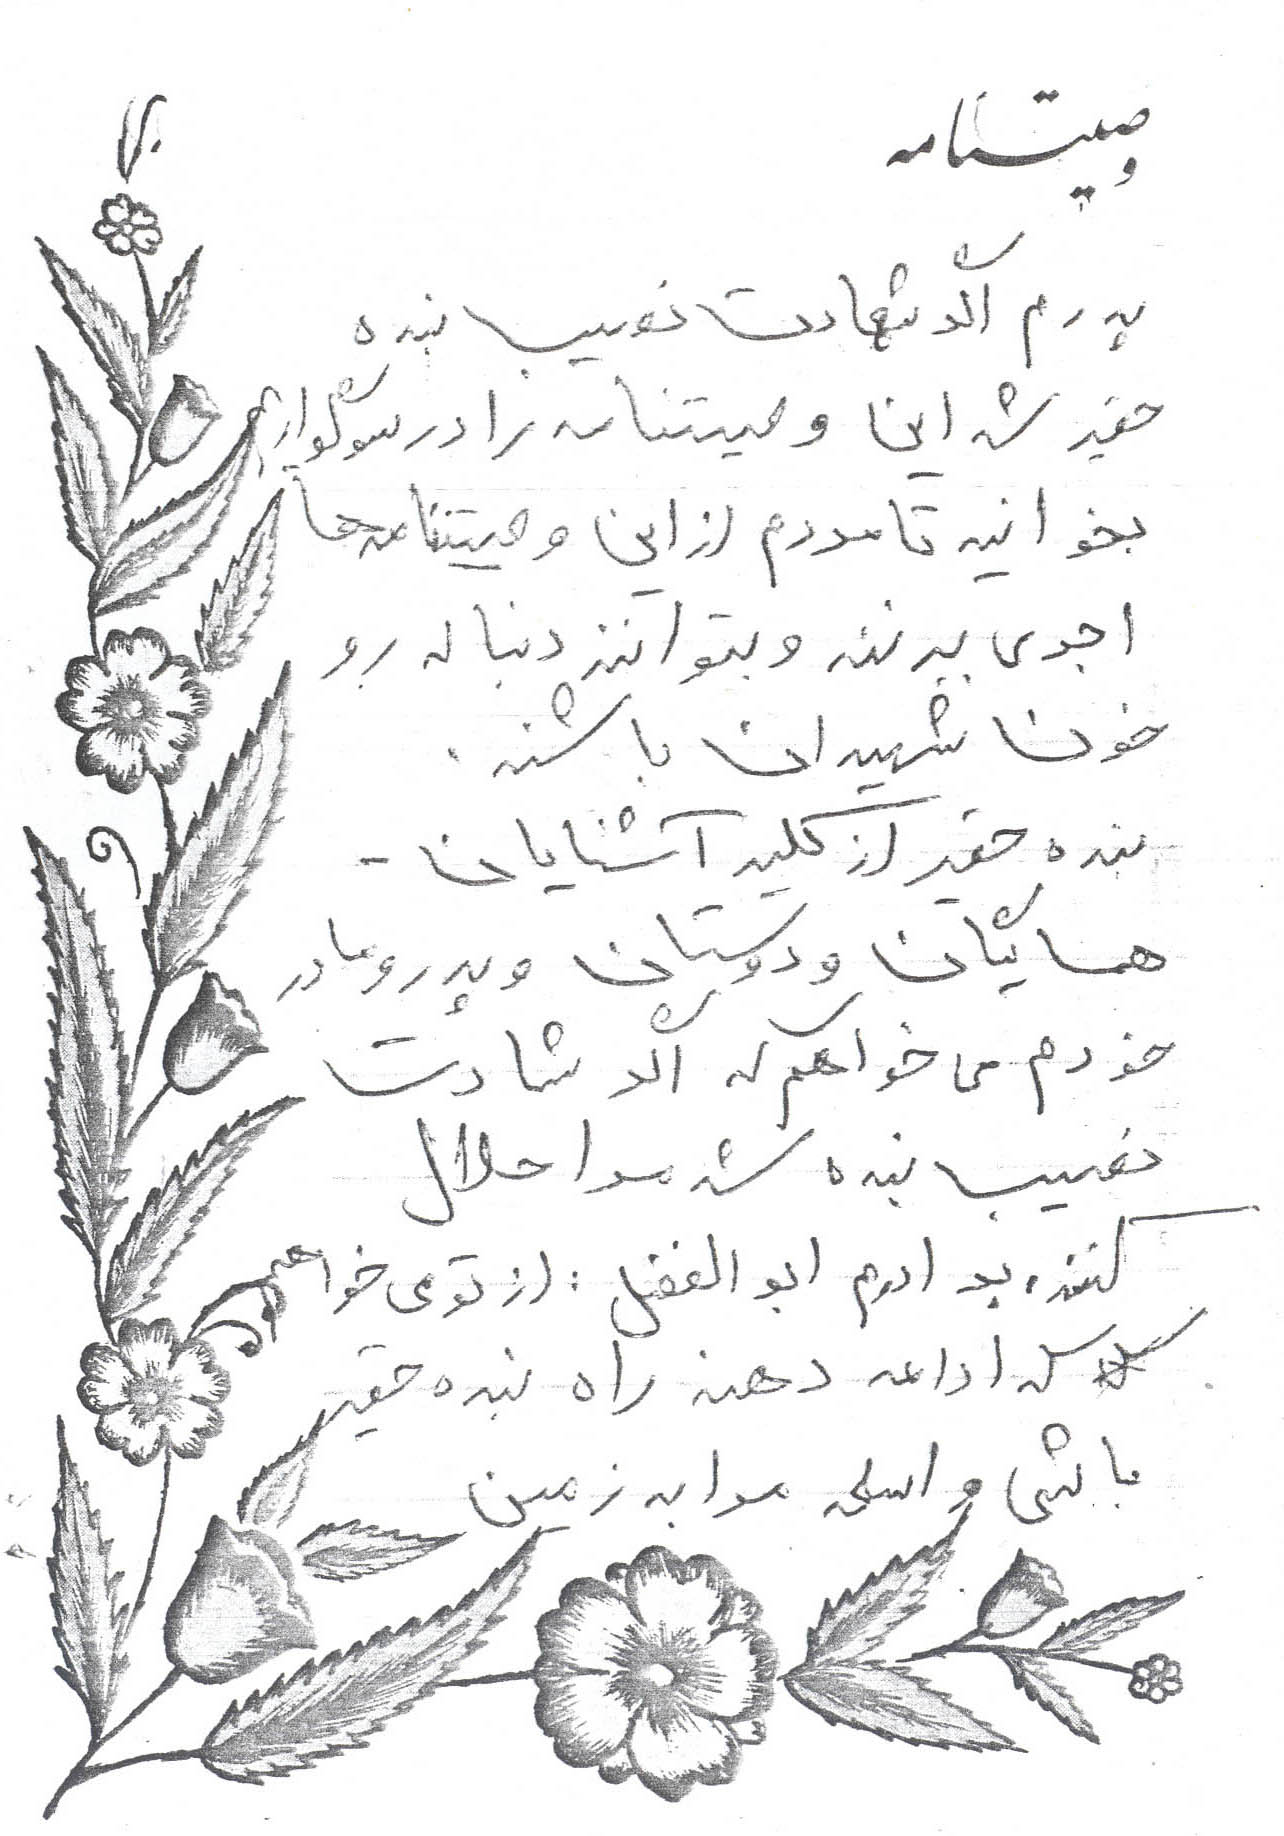 وصیتنامه
پدرم اگر شهادت نصیب بنده
حقیر شد این وصیتنامه را در سوگواریم
بخوانید تا مردم از این وصیتنامه ها
اجری ببرند و بتوانند دنباله رو
خون شهیدان باشند.
بنده حقیر از کلیه آشنایان -
همسایگان و دوستان و پدر و مادر
خودم می خواهم که اگر شادت
نصیب بنده شد مرا حلال
کنند، برادرم ابوالفضل: از تو می خواهم
که ادامه دهنده راه بنده حقیر
باشی و اسلحه مرا به زمین